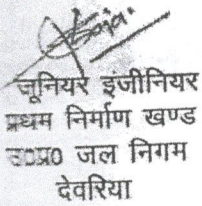 जूनियर इंजीनियर
प्रथम निर्माण खण्ड
उ०प्र० जल निगम
देवरिया